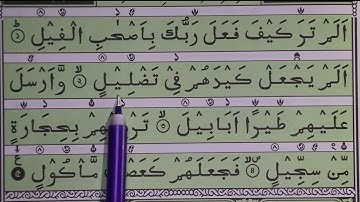 اَلَمْ تَرَ كَيْفَ فَعَلَ رَبُّكَ بِاَصْحٰبِ الْفِيْلِ ۝١
اَلَمْ يَجْعَلْ كَيْدَهُمْ فِيْ تَضْلِيْلٍ ۝٢ وَّاَرْسَلَ
عَلَيْهِمْ طَيْرًا اَبَابِيْلَ ۝٣ بِحِجَارَةٍ
مِّنْ سِجِّيْلٍ ۝٤ فَجَعَلَهُمْ كَعَصْفٍ مَّاْكُوْلٍ ۝٥